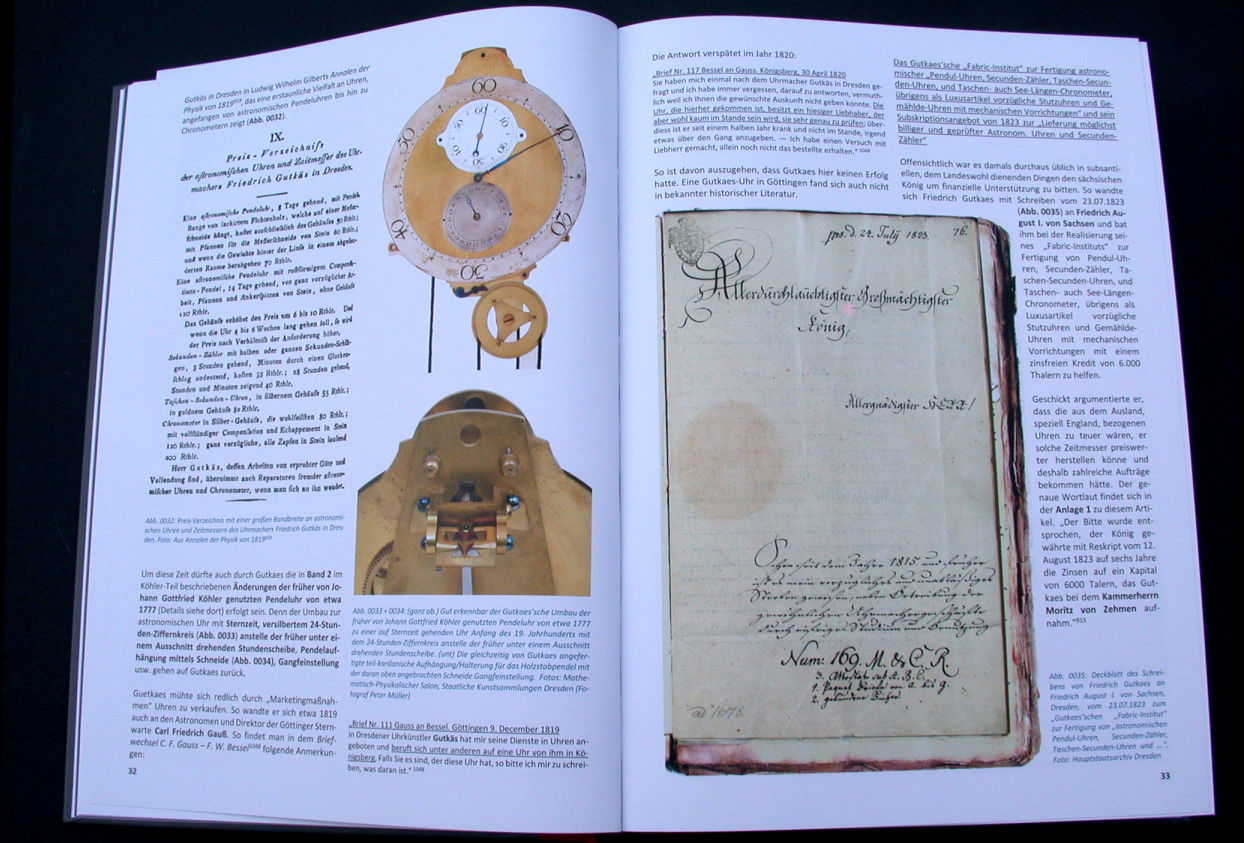 Gutkäs in Dresden in Ludwig Wilhelm Gilberts Annalen der
Physik von 1819⁹²⁹, das eine erstaunliche Vielfalt an Uhren,
angefangen von astronomischen Pendeluhren bis hin zu
Chronometern zeigt (Abb. 0032).
IX.
Preis-Verzeichniss
der astronomischen Uhren und Zeitmesser des Uhr-
machers Friedrich Gutkäs in Dresden.
Eine astronomische Pendeluhr, 8 Tage gehend, mit Pendel
Stange von lackirtem Fichtenholz, welche auf einer Messer-
schneide hängt, kostet ausschliesslich des Gehäuses 50 Rthlr.;
mit Pfannen für die Messerschneide von Stein 60 Rthlr.;
und wenn die Gewichte hinter der Linse in einem abgeson-
derten Raume herabgehen 70 Rthlr.
Eine astronomische Pendeluhr mit rostförmigem Compensa-
tions-Pendel, 14 Tage gehend, von ganz vorzüglicher Ar-
beit, Pfannen und Ankerspitzen von Stein, ohne Gehäuse
120 Rthlr.
Das Gehäuse erhöhet den Preis um 6 bis 10 Rthlr. Und
wenn die Uhr 4 bis 6 Wochen lang gehen soll, so wird
der Preis nach Verhältniss der Anforderung höher.
Sekunden-Zähler mit halben oder ganzen Sekunden-Schlä-
gen, 3 Stunden gehend, Minuten durch einen Glocken-
schlag andeutend, kosten 35 Rthlr.; 28 Stunden gehend,
Stunden und Minuten zeigend 40 Rthlr.
Taschen-Sekunden-Uhren, in silbernem Gehäuse 55 Rthlr.;
in goldnem Gehäuse 80 Rthlr.
Chronometer in Silber-Gehäuse, die wohlfeilsten 80 Rthlr.;
mit vollständiger Compensation und Echappement in Stein
120 Rthlr.; ganz vorzügliche, alle Zapfen in Stein laufend
200 Rthlr.
Herr Gutkäs, dessen Arbeiten von erprobter Güte und
Vollendung sind, übernimmt auch Reparaturen fremder astrono-
mischer Uhren und Chronometer, wenn man sich an ihn wendet.
Abb. 0032: Preis-Verzeichnis mit einer großen Bandbreite an astronomi-
schen Uhren und Zeitmessern des Uhrmachers Friedrich Gutkäs in Dres-
den. Foto: Aus Annalen der Physik von 1819⁹²⁹
Um diese Zeit dürfte auch durch Gutkaes die in Band 2 im
Köhler-Teil beschriebenen Änderungen der früher von Jo-
hann Gottfried Köhler genutzten Pendeluhr von etwa
1777 (Details siehe dort) erfolgt sein. Denn der Umbau zur
astronomischen Uhr mit Sternzeit, versilbertem 24-Stun-
den-Ziffernkreis (Abb. 0033) anstelle der früher unter ei-
nem Ausschnitt drehenden Stundenscheibe, Pendelauf-
hängung mittels Schneide (Abb. 0034), Gangeinstellung
usw. gehen auf Gutkaes zurück.
Guetkaes mühte sich redlich durch „Marketingmaßnah-
men" Uhren zu verkaufen. So wandte er sich etwa 1819
auch an den Astronomen und Direktor der Göttinger Stern-
warte Carl Friedrich Gauß. So findet man in dem Brief-
wechsel C. F. Gauss – F. W. Bessel¹⁰⁴⁸ folgende Anmerkun-
gen:
32
60
10
20
30
50
60
Abb. 0033 + 0034: (ganz ob.) Gut erkennbar der Gutkaes'sche Umbau der
früher von Johann Gottfried Köhler genutzten Pendeluhr von etwa 1777
zu einer auf Sternzeit gehenden Uhr Anfang des 19. Jahrhunderts mit
dem 24-Stunden-Ziffernkreis anstelle der früher unter einem Ausschnitt
drehenden Stundenscheibe. (unt) Die gleichzeitig von Gutkaes angefer-
tigte teil-kardanische Aufhängung/Halterung für das Holzstabpendel mit
der daran oben angebrachten Schneide Gangeinstellung. Fotos: Mathe-
matisch-Physikalischer Salon, Staatliche Kunstsammlungen Dresden (Fo-
tograf Peter Müller)
„Brief Nr. 111 Gauss an Bessel. Göttingen 9. December 1819
in Dresdener Uhrkünstler Gutkäs hat mir seine Dienste in Uhren an-
geboten und beruft sich unter anderen auf eine Uhr von ihm in Kö-
nigsberg. Falls Sie es sind, der diese Uhr hat, so bitte ich mir zu schrei-
ben, was daran ist." ¹⁰⁴⁸
Die Antwort verspätet im Jahr 1820:
„Brief Nr. 117 Bessel an Gauss. Königsberg, 30 April 1820
Sie haben mich einmal nach dem Uhrmacher Gutkaes in Dresden ge-
fragt und ich habe immer vergessen, darauf zu antworten, vermuth-
lich weil ich Ihnen die gewünschte Auskunft nicht geben konnte. Die
Uhr, die hierher gekommen ist, besitzt ein hiesiger Liebhaber, der
aber wohl kaum im Stande sein wird, sie sehr genau zu prüfen; über-
diess ist er seit einem halben Jahr krank und nicht im Stande, irgend
etwas über den Gang anzugeben. — Ich habe einen Versuch mit
Liebherr gemacht, allein noch nicht das bestellte erhalten." ¹⁰⁴⁸
So ist davon auszugehen, dass Gutkaes hier keinen Erfolg
hatte. Eine Gutkaes-Uhr in Göttingen fand sich auch nicht
in bekannter historischer Literatur.
Das Gutkaes'sche „Fabric-Institut" zur Fertigung astrono-
mischer „Pendul-Uhren, Secunden-Zähler, Taschen-Secun-
den-Uhren, und Taschen- auch See-Längen-Chronometer,
übrigens als Luxusartikel vorzügliche Stutzuhren und Ge-
mählde-Uhren mit mechanischen Vorrichtungen" und sein
Subskriptionsangebot von 1823 zur „Lieferung möglichst
billiger und geprüfter Astronom. Uhren und Secunden-
Zähler"
Offensichtlich war es damals durchaus üblich in substanti-
ellen, dem Landeswohl dienenden Dingen den sächsischen
König um finanzielle Unterstützung zu bitten. So wandte
sich Friedrich Gutkaes mit Schreiben vom 23.07.1823
(Abb. 0035) an Friedrich Au-
gust I. von Sachsen und bat
ihm bei der Realisierung sei-
nes „Fabric-Instituts" zur
Fertigung von Pendul-Uh-
ren, Secunden-Zähler, Ta-
schen-Secunden-Uhren, und
Taschen- auch See-Längen-
Chronometer, übrigens als
Luxusartikel vorzügliche
Stutzuhren und Gemählde-
Uhren mit mechanischen
Vorrichtungen mit einem
zinsfreien Kredit von 6.000
Thalern zu helfen.
Geschickt argumentierte er,
dass die aus dem Ausland,
speziell England, bezogenen
Uhren zu teuer wären, er
solche Zeitmesser preiswer-
ter herstellen könne und
deshalb zahlreiche Aufträge
bekommen hätte. Der ge-
naue Wortlaut findet sich in
der Anlage 1 zu diesem Arti-
kel. „Der Bitte wurde ent-
sprochen, der König ge-
währte mit Reskript vom 12.
August 1823 auf sechs Jahre
die Zinsen auf ein Kapital
von 6000 Talern, das Gut-
kaes bei dem Kammerherrn
Moritz von Zehmen auf-
nahm."⁹¹⁵
d. 24. July 1823. 76.
Allerdurchlauchtigster Großmächtigster
König,
Allergnädigster HERR!
dem Jahre 1815
Num: 169. M. & C. R
Abb. 0035: Deckblatt des Schrei-
bens von Friedrich Gutkaes an
Friedrich August I. von Sachsen,
Dresden, vom 23.07.1823 zum
„Gutkaes'schen „Fabric-Institut"
zur Fertigung von „astronomischen
Pendul-Uhren, Secunden-Zähler,
Taschen-Secunden-Uhren und ...".
Foto: Hauptstaatsarchiv Dresden
33